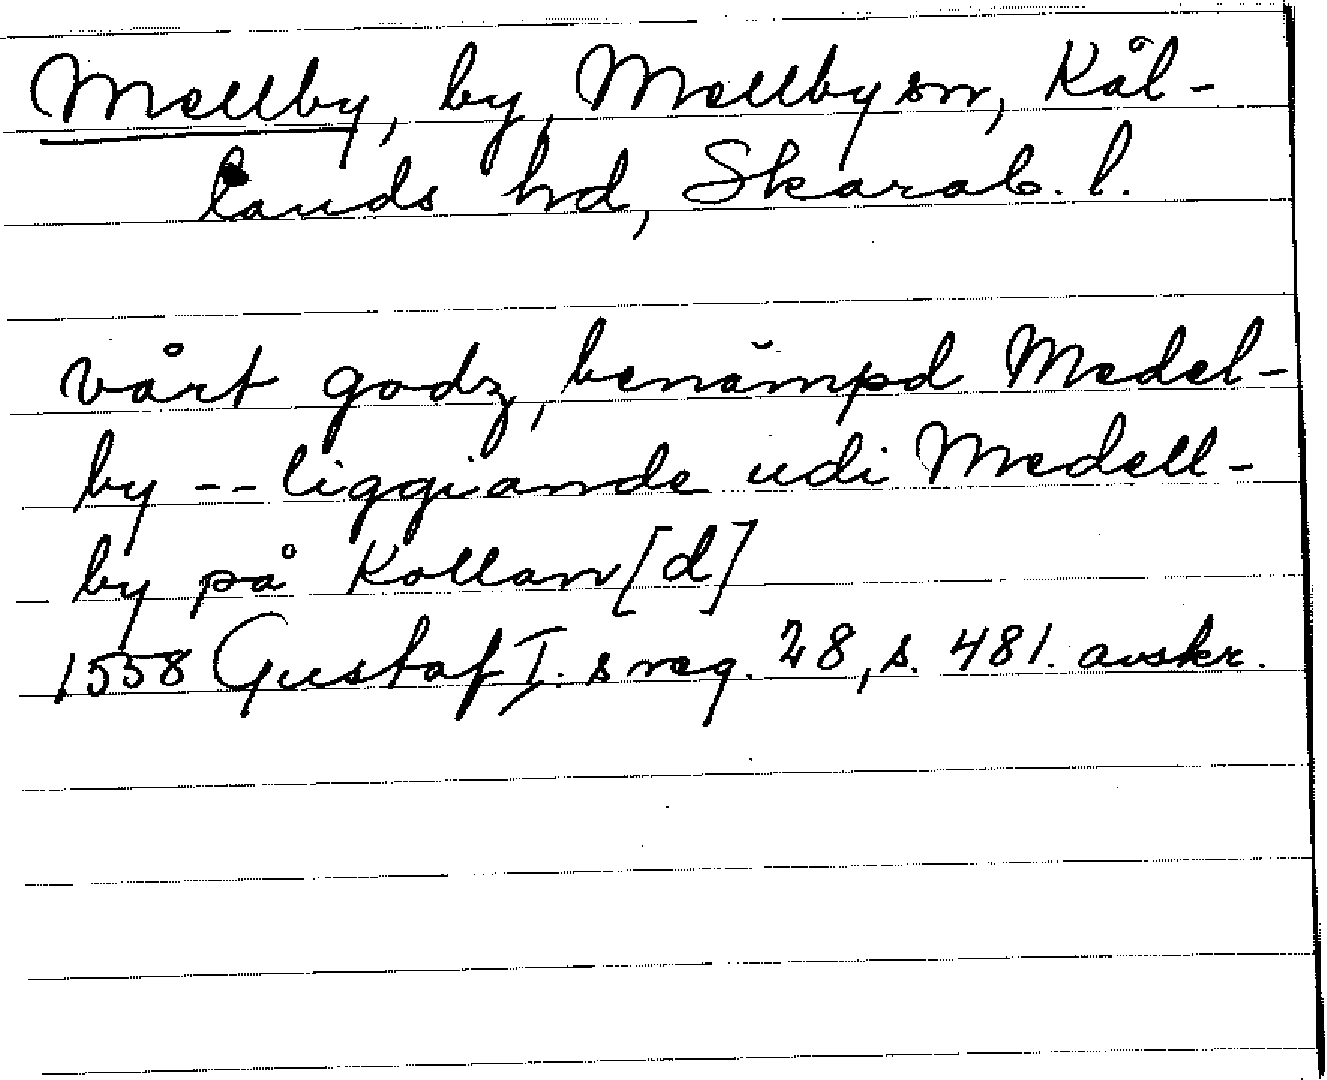 Mellby, by, Mellby sn, Kål-
lands hd, Skarab. l.
vårt godz, benämpd Medel-
by -- liggiande udi Medell-
by på Kollan[d]
1558 Gustaf I. s reg. 28, s. 481. avskr.